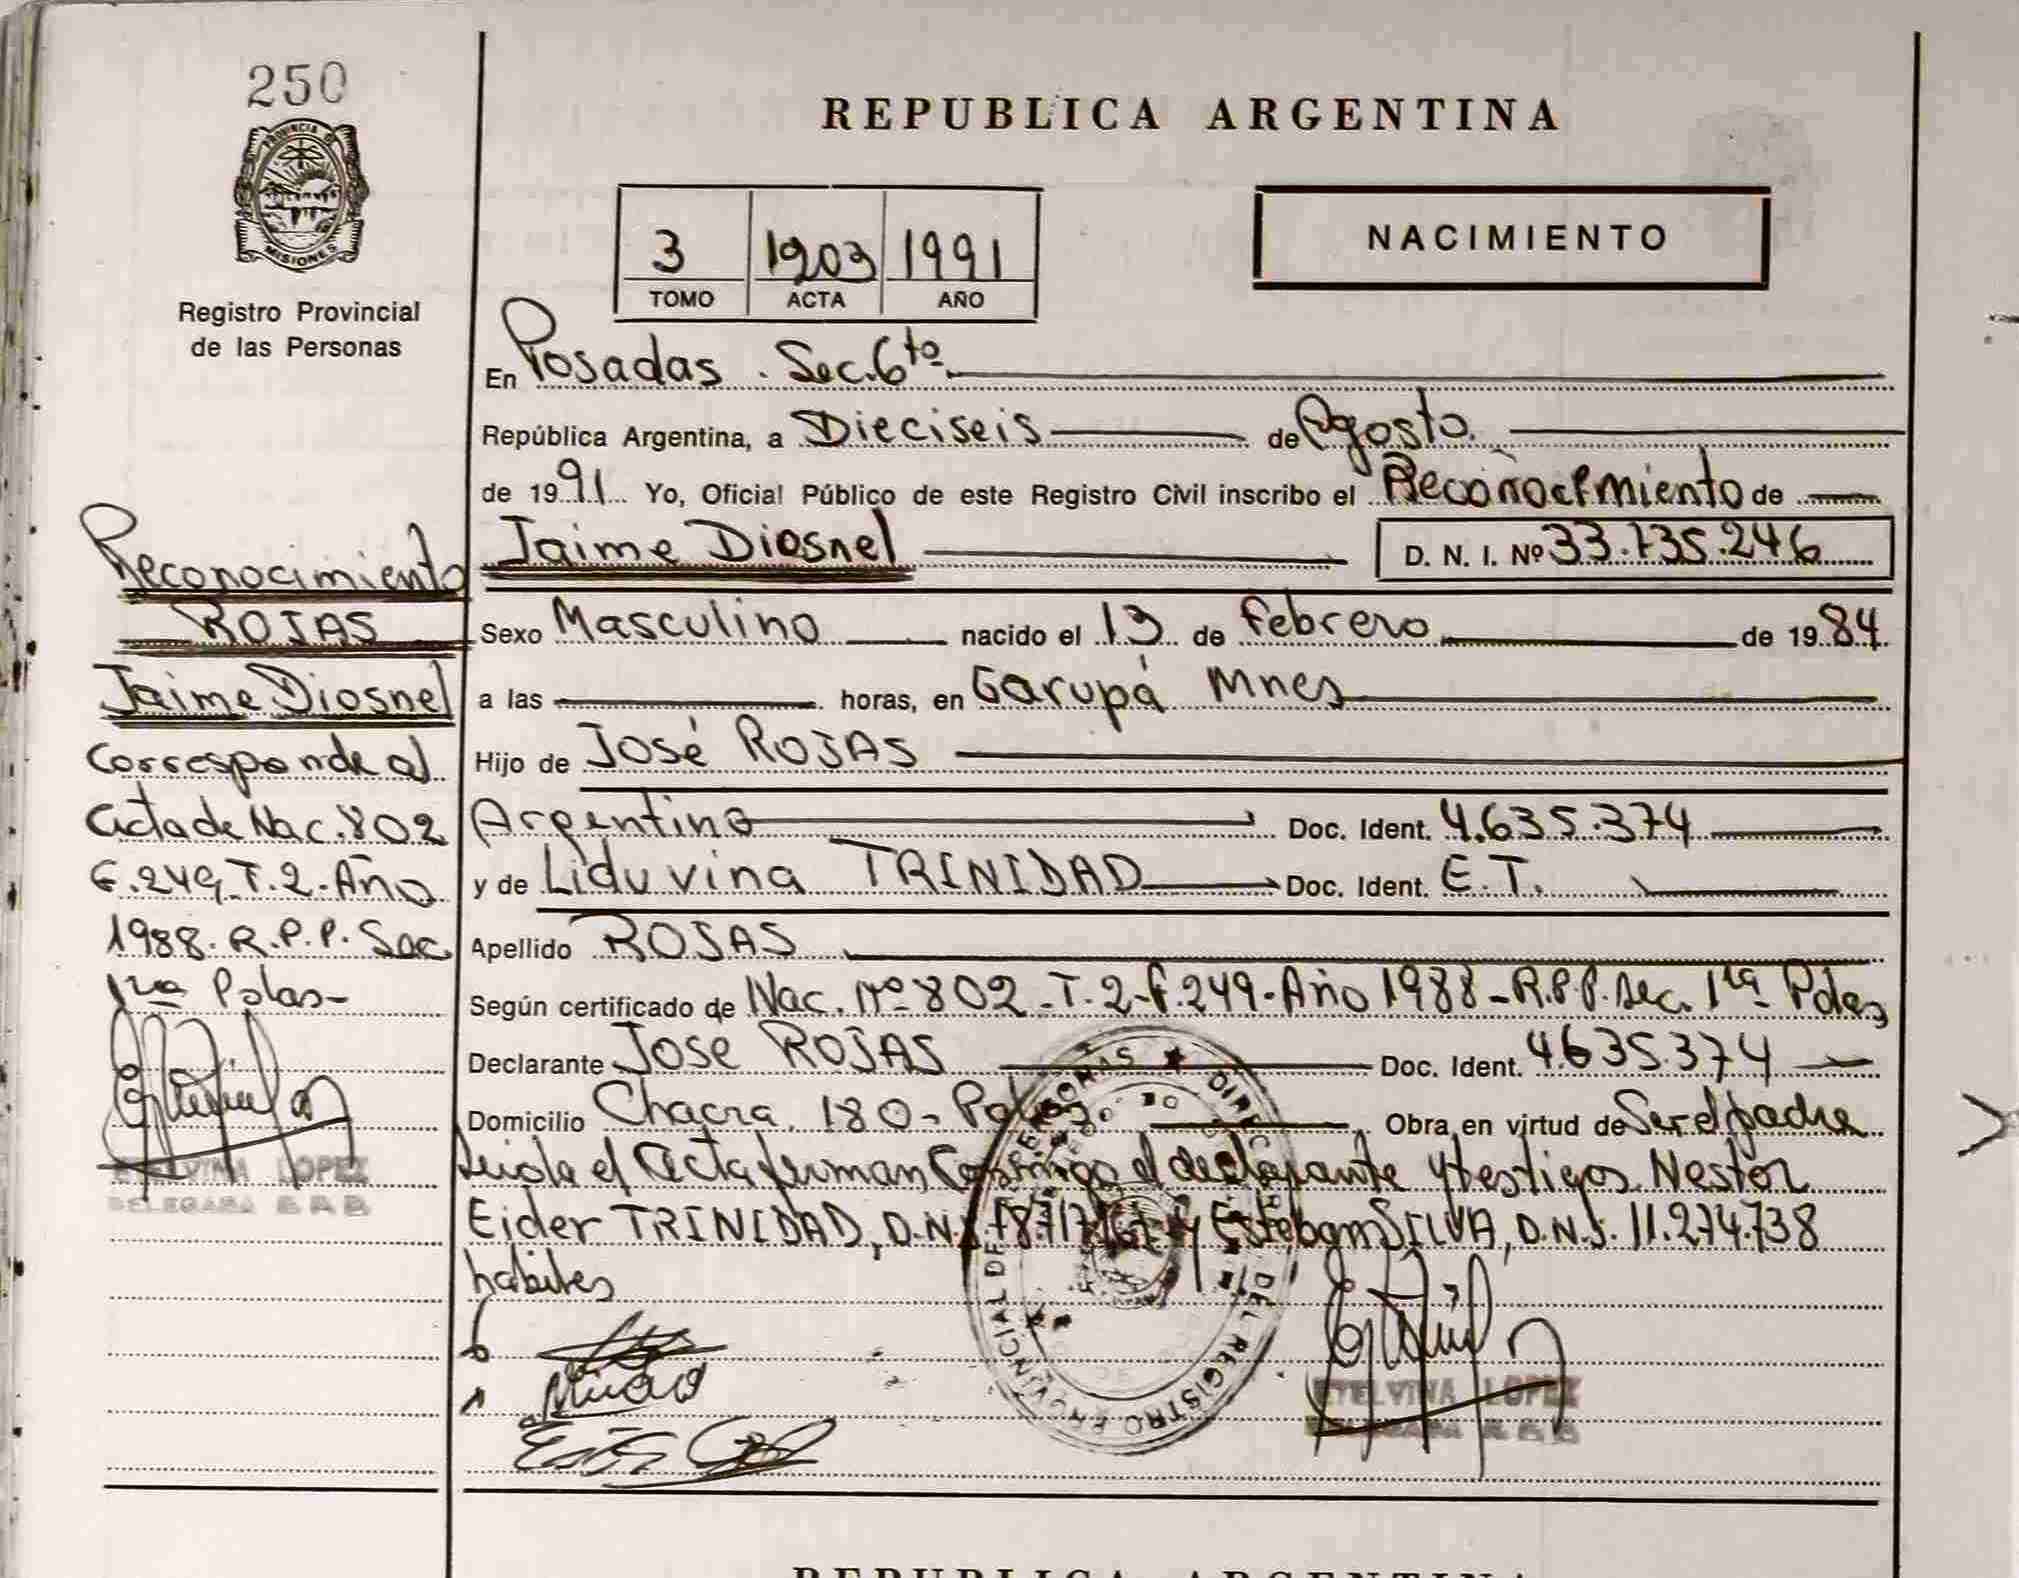 250
PROVINCIA DE
MISIONES
Registro Provincial
de las Personas
REPUBLICA ARGENTINA
3 1203 1991
TOMO ACTA AÑO
NACIMIENTO
En Posadas. Sec. 6ta
República Argentina, a Dieciseis de Agosto
de 1991 Yo, Oficial Público de este Registro Civil inscribo el Reconocimiento de
Jaime Diosnel D. N. I. Nº 33.735.246
Sexo Masculino nacido el 13 de Febrero de 1984
a las horas, en Garupá Mnes
Hijo de José ROJAS
Argentino Doc. Ident. 4.635.374
y de Liduvina TRINIDAD Doc. Ident. E.T.
Apellido ROJAS
Según certificado de Nac. Nº 802 - T. 2 - F. 249 - Año 1988 - R.P.P. Sec. 1ra Pdas
Declarante Jose ROJAS Doc. Ident. 4.635.374
Domicilio Chacra 180 - Obra en virtud de Ser el padre
Leida el Acta firman Conmigo el declarante y testigos Nestor
Eider TRINIDAD, D.N.I. y Esteban SILVA, D.N.I. 11.274.738
habiles
ETELVINA LOPEZ
DELEGADA
Reconocimiento
ROJAS
Jaime Diosnel
Corresponde al
Acta de Nac. 802
F. 249 T. 2 - Año
1988. R.P.P. Sec.
1ra Pdas -
ETELVINA LOPEZ
DELEGADA
DIRECCION PROVINCIAL DEL REGISTRO DE PERSONAS
REPUBLICA ARGENTINA